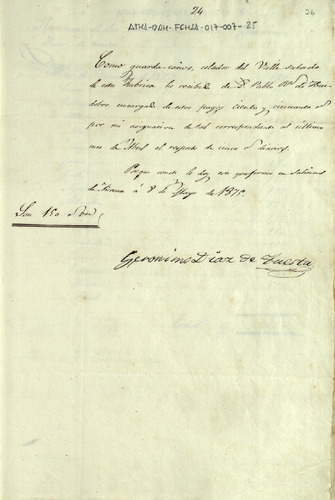 24
26
ATHA-DAH-FCHSA-017-007-25
Como guarda-caños, celador del Valle salado
de esta Fabrica he recibido de D. Pablo
encargado de estos pagos ciento y cincuenta
por mi asignacion de tal correspondiente al último
mes de Abril al respecto de cinco diarios.
Para que conste lo doy en Salinas
de Añana á 8 de Mayo de 1875.
Son 150
Geronimo Diaz de Tuesta